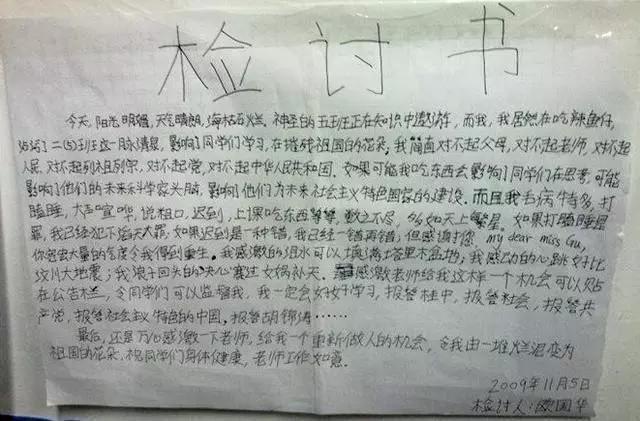 检讨书
今天，阳光明媚，天气晴朗，海枯石烂，神圣的五班正在知识中遨游，而我，我居然在吃辣鱼仔，
玷污了二(5)班这一脉清泉，影响了同学们学习，在摧残祖国的花朵，我简直对不起父母，对不起老师，对不起
人民，对不起列祖列宗，对不起党，对不起中华人民共和国。如果可能我吃东西会影响了同学们在思考，可能
影响了他们的未来科学家头脑，影响了他们为未来社会主义特色国家的建设。而且我毛病特多，打
瞌睡，大声宣哗，说粗口，迟到，上课吃东西等等，数之不尽，多如天上繁星。如果打瞌睡是
罪，我已经犯下滔天大罪，如果迟到是一种错，我已经一错再错；但感谢您，my dear miss Gu,
你宽宏大量的态度令我得到重生。我感激的泪水可以填满塔里木盆地；我感动的心跳好比
汶川大地震；我浪子回头的决心赛过女娲补天。感激老师给我这样一个机会可以贴
在公告栏，令同学们可以监督我，我一定会好好学习，报答桂中，报答社会，报答共
产党，报答社会主义特色的中国，报答胡锦涛……
最后，还是万心感激一下老师，给我一个重新做人的机会，令我由一堆烂泥变为
祖国的花朵，祝同学们身体健康，老师工作如意．
2009年11月5日
检讨人：国华